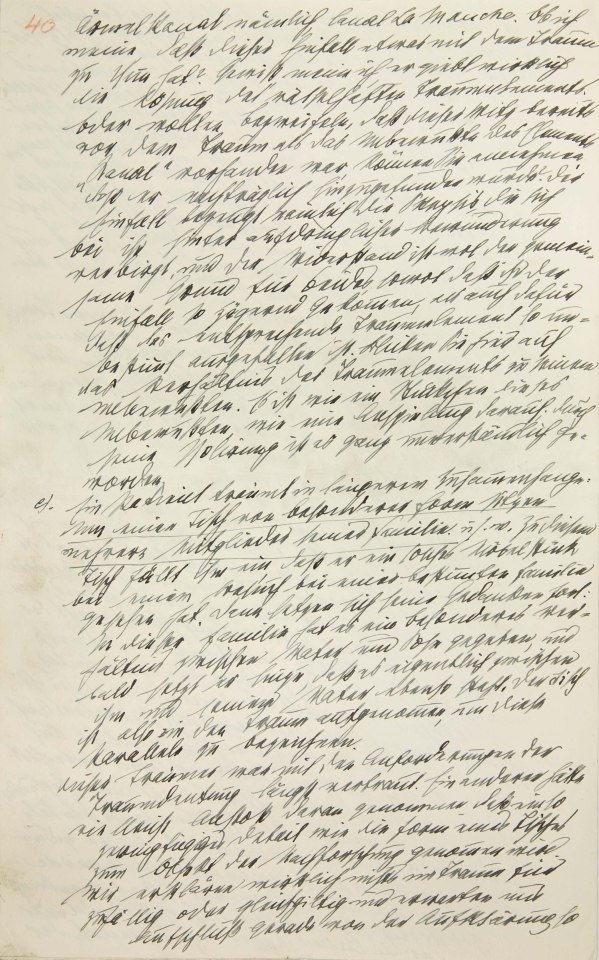 40
Ärmelkanal nämlich Canal La Manche. Ob ich
meine, daß dieser Einfall etwas mit dem Traum
zu thun hat? Gewiß mein ich, er giebt wirklich
die Lösung des rätselhaften Traumelements.
oder wollen bezweifeln, daß dieser Witz bereits
vor dem Traum als das Unbewußte des Elements
„Kanal“ vorhanden war, können Sie annehmen
daß er nachträglich hinzugefunden wurde? Der
Einfall bezeugt nämlich die Skepsis die sich
bei ihr hinter aufdringlicher Bewunderung
verbirgt, und der Widerstand ist wol der gemein-
same Grund für beides, sowol daß ihr der
Einfall so zögernd gekommen, als auch dafür
daß das entsprechende Traumelement so un-
bestimt ausgefallen ist. Blicken Sie hier auf
das Verhältnis des Traumelements zu seinem
Unbewußten. Es ist wie ein Stückchen dieses
Unbewußten, wie eine Anspielung darauf; durch
seine Isolirung ist es ganz unverständlich ge-
worden.
e). Ein Patient träumt in längerem Zusammenhange:
Um einen Tisch von besonderer Form sitzen
mehrere Mitglieder seiner Familie. u. s. w. Zu diesem
Tisch fällt ihm ein daß er ein solches Möbelstück
bei einem Besuch bei einer bestimten Familie
gesehen hat. Dann setzen sich seine Gedanken fort:
In dieser Familie hat es ein besonderes Ver-
hältnis zwischen Vater und Sohn gegeben, und
bald setzt er hinzu daß es eigentlich zwischen
ihm und seinem Vater ebenso steht. Der Tisch
ist also in den Traum aufgenomen, um diese
Parallele zu bezeichnen.
Dieser Träumer war mit den Anforderungen der
Traumdeutung längst vertraut. Ein anderer hätte
vielleicht Anstoß daran genommen daß ein so
geringfügiges Detail wie die Form eines Tisches
zum Objekt der Nachforschung genomen wird.
Wir erklären wirklich nichts im Traum für
zufällig oder gleichgiltig und erwarten uns
Aufschluß gerade von der Aufklärung so